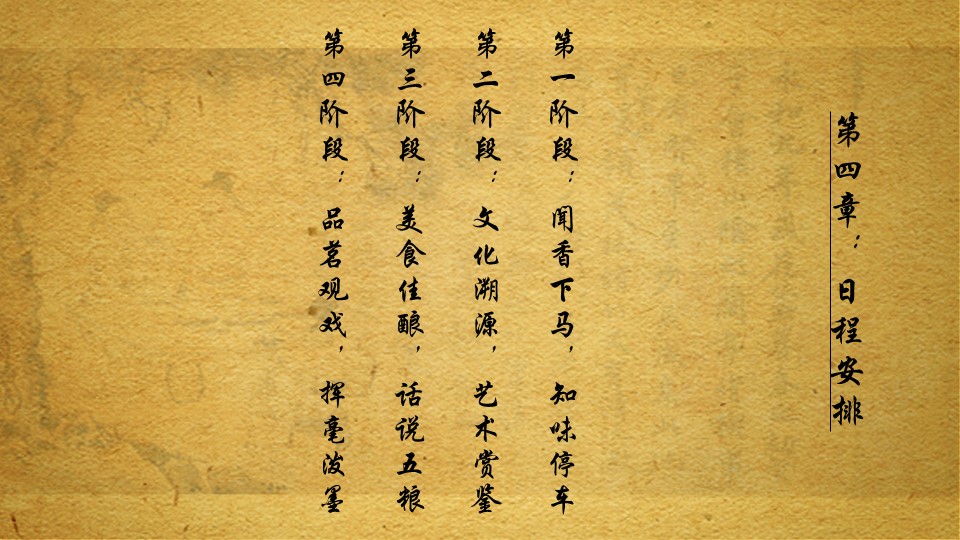 第四章：日程安排
第一阶段：闻香下马，知味停车
第二阶段：文化溯源，艺术赏鉴
第三阶段：美食佳酿，话说五粮
第四阶段：品茗观戏，挥毫泼墨